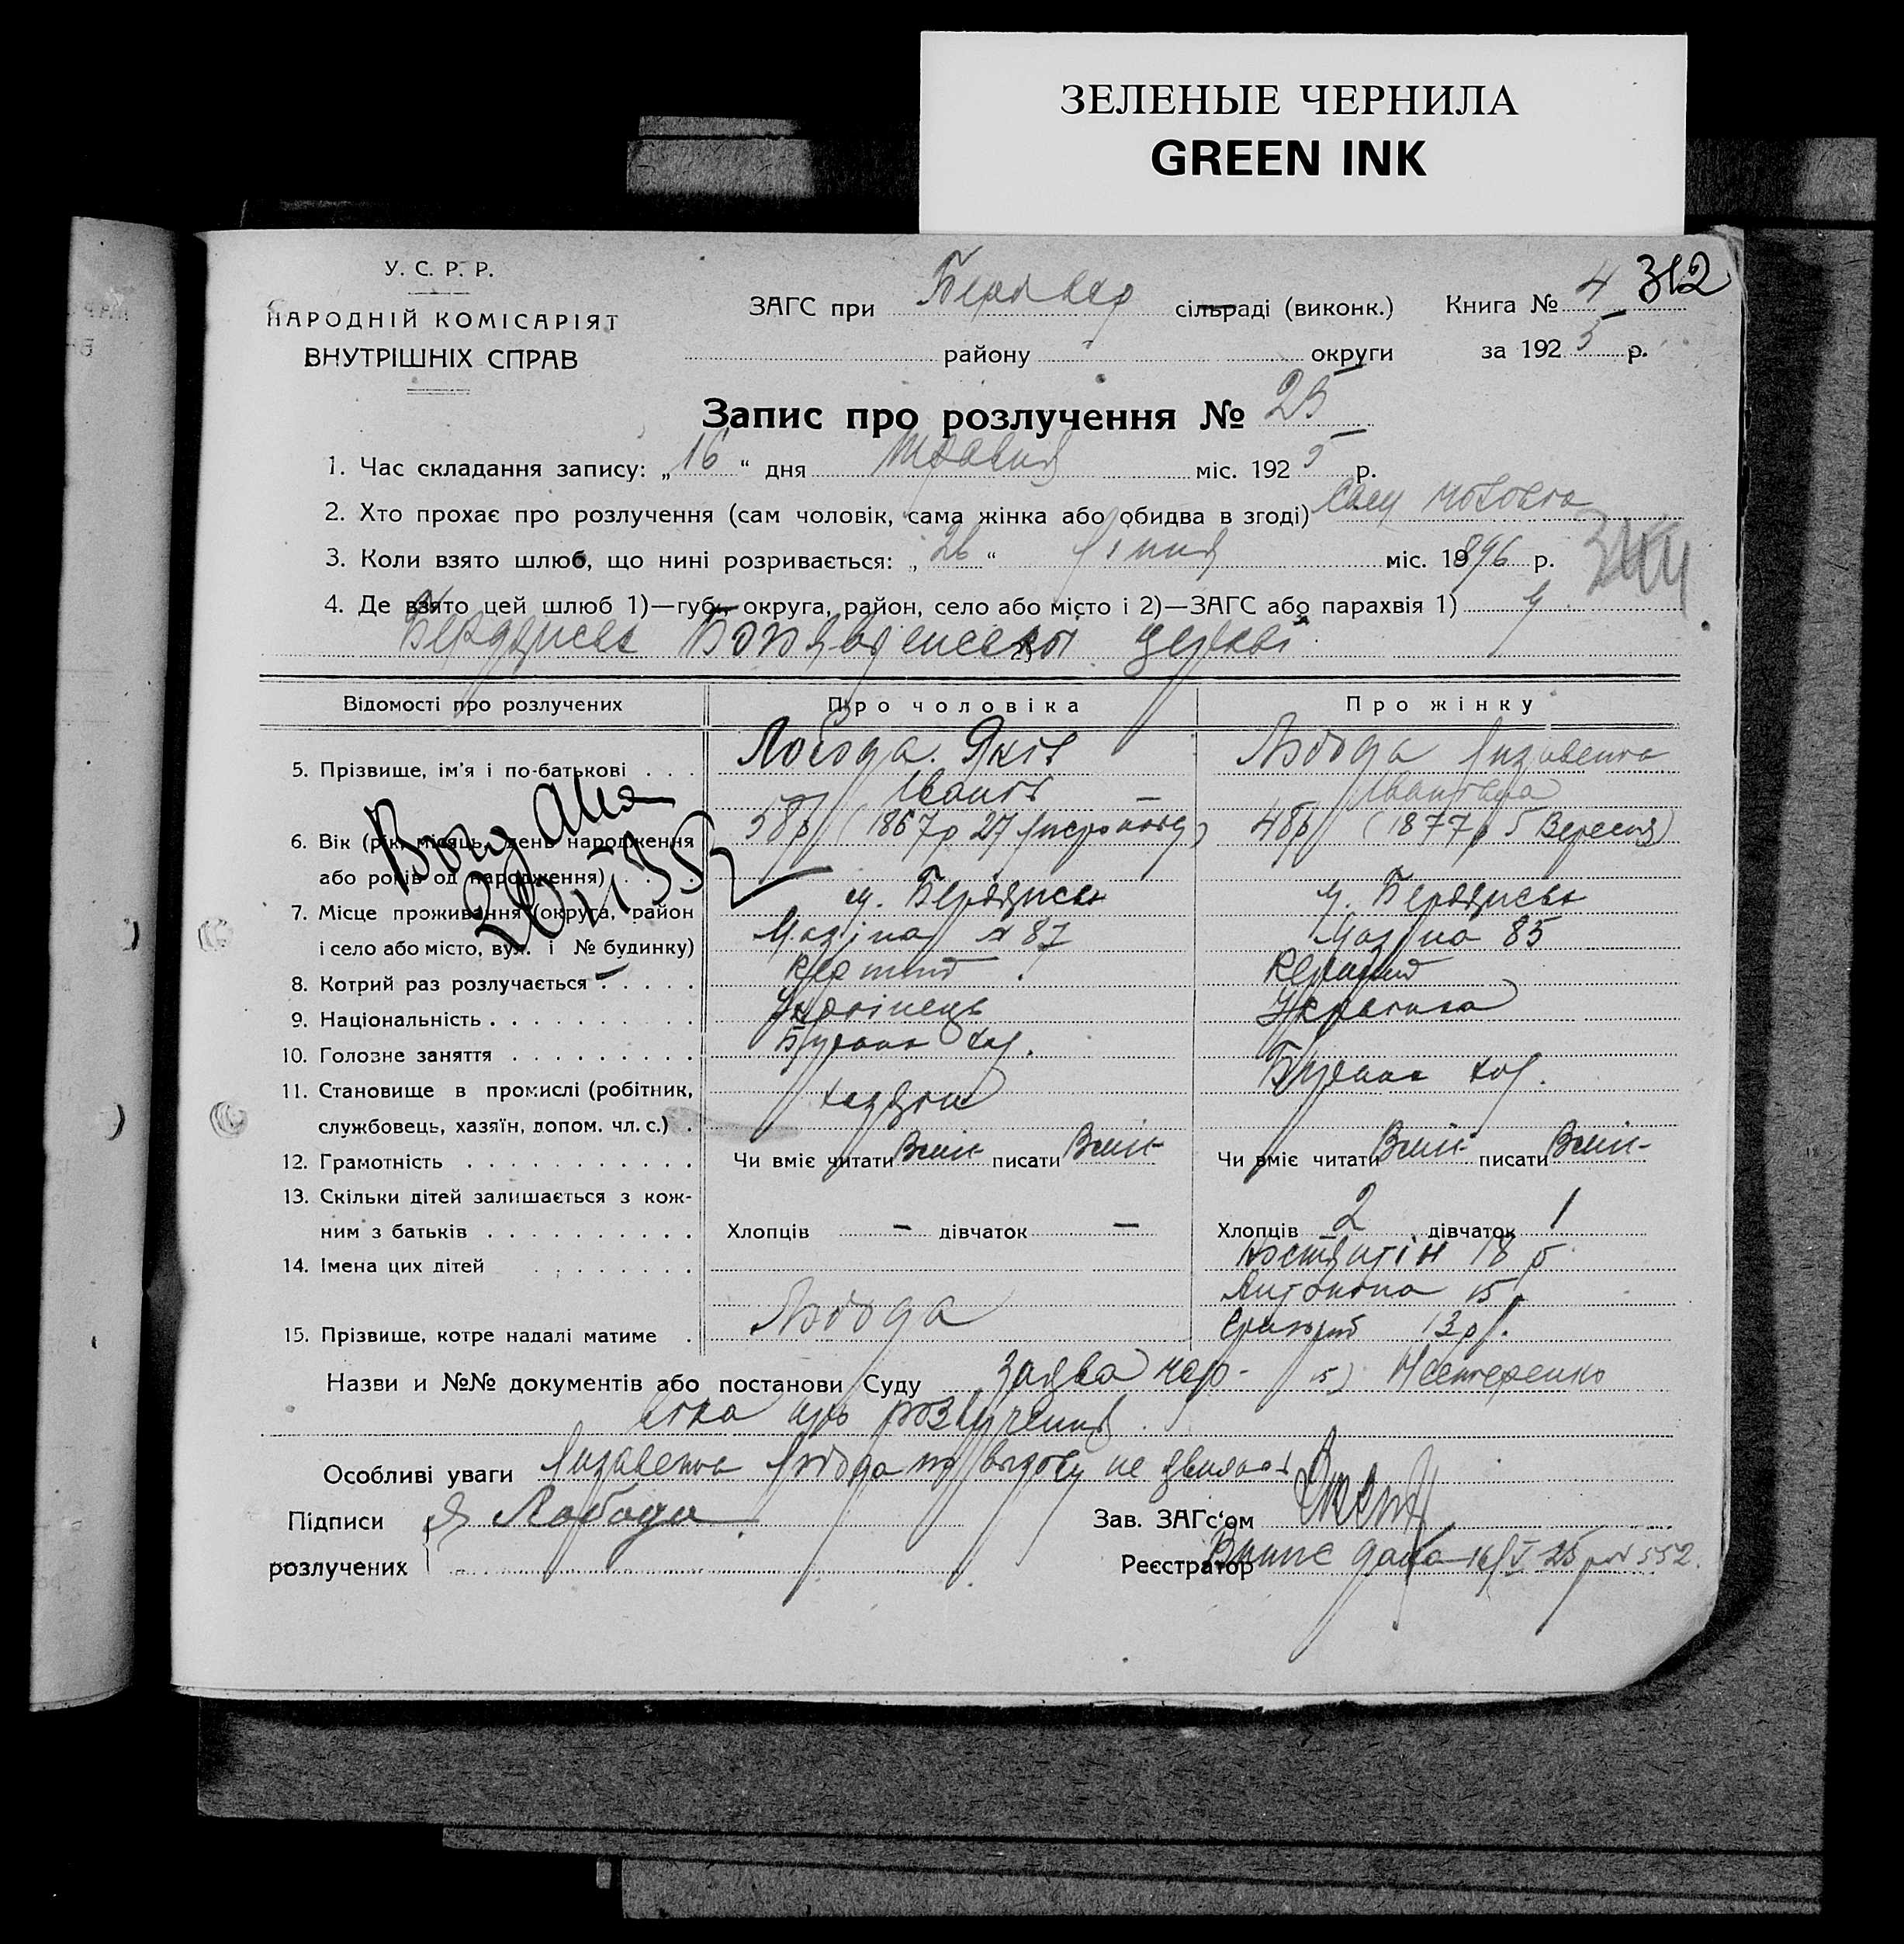 ЗЕЛЕНЫЕ ЧЕРНИЛА
GREEN INK
У. С. Р. Р.
НАРОДНІЙ КОМІСАРІЯТ
ВНУТРІШНІХ СПРАВ
ЗАГС при сільраді (виконк.) Книга № 4 312
району округи за 1925 р.
Запис про розлучення № 25
1. Час складання запису: „16“ дня травня міс. 1925 р.
2. Хто прохає про розлучення (сам чоловік, сама жінка або обидва в згоді) сам
3. Коли взято шлюб, що нині розривається: „26“ міс. 1896 р.
4. Де взято цей шлюб 1)—губ., округа, район, село або місто і 2)—ЗАГС або парахвія 1) у
церкві
Відомості про розлучених Про чоловіка Про жінку
5. Прізвище, ім'я і по-батькові Лобода Яків Лобода Лизавета
Іванів Іванівна
6. Вік (рік, місяць, день народження 58 р. (1867 р 27 листопада) 48 р. (1877 р 5 Вересня)
або років од народження)
7. Місце проживання (округа, район м. м.
і село або місто, вул. і № будинку) № 87 85
8. Котрий раз розлучається
9. Національність Українець Українка
10. Головне заняття
11. Становище в промислі (робітник,
службовець, хазяїн, допом. чл. с.) хазяїн
12. Грамотність Чи вміє читати Вміє писати Вміє Чи вміє читати Вміє писати Вміє
13. Скільки дітей залишається з кож-
ним з батьків Хлопців — дівчаток — Хлопців 2 дівчаток 1
14. Імена цих дітей 18 р
Антоніна 15
15. Прізвище, котре надалі матиме Лобода 13 р.
Назви и №№ документів або постанови Суду Заява чоло- Нестеренко
віка про розлучення
Особливі уваги Лизавета Лобода не
Підписи Я Лобода Зав. ЗАГс'ом
розлучених Реєстратор Випис дана 16/V 25 552.